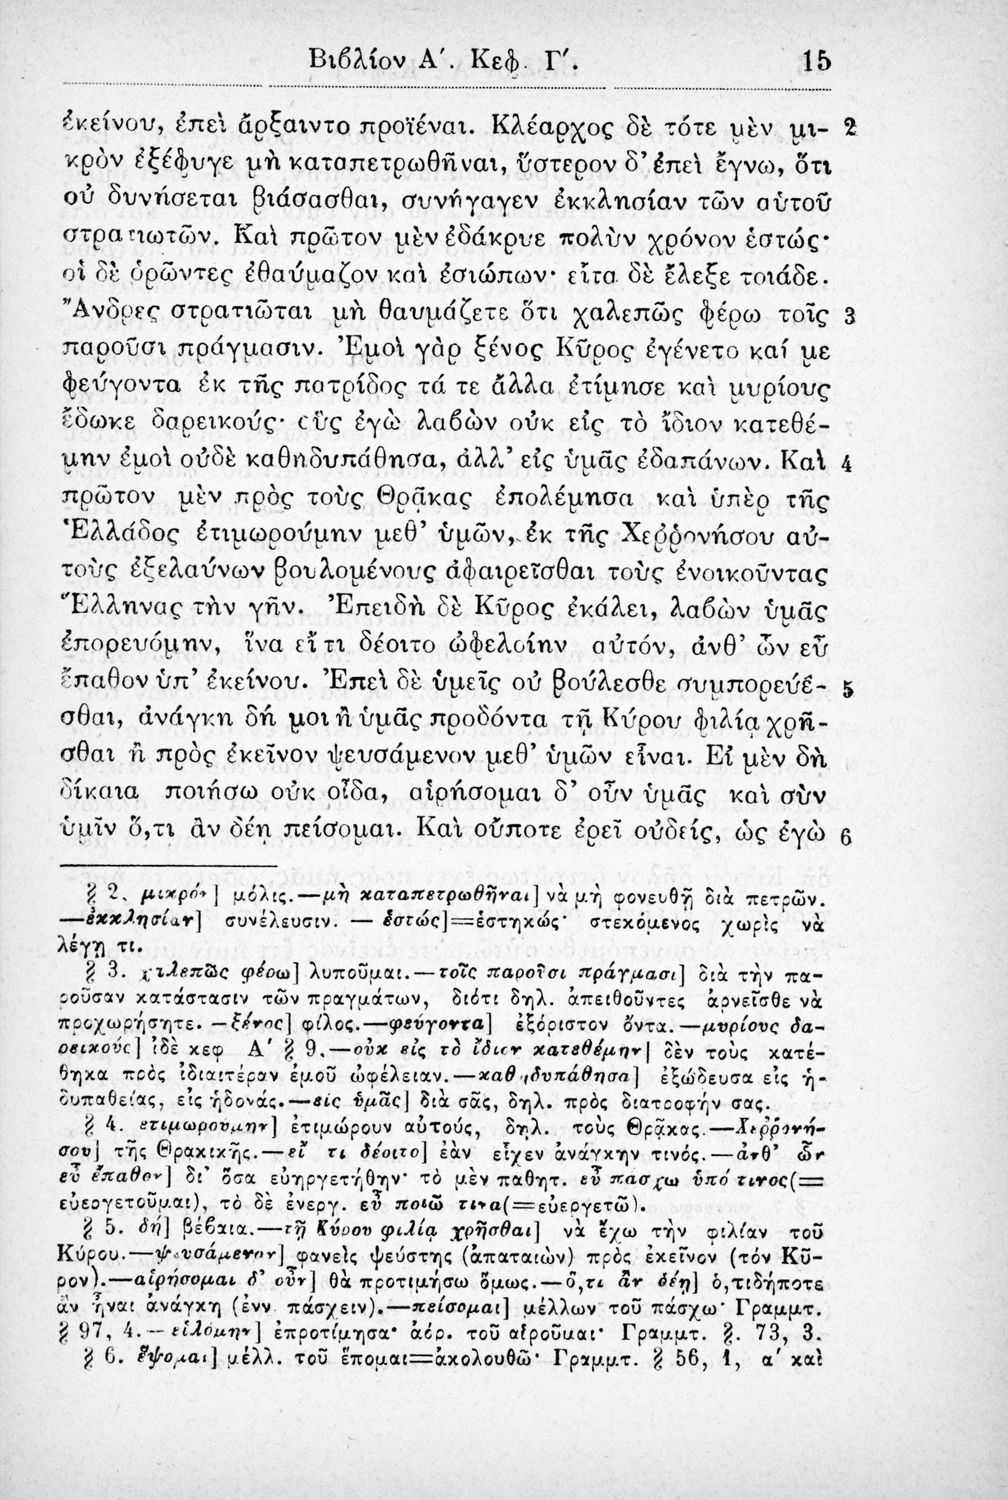 Βιβλίον Α΄. Κεφ. Γ΄. 15
ἐκείνου, ἐπεὶ ἄρξαιντο προϊέναι. Κλέαρχος δὲ τότε μὲν μι- 2
κρὸν ἐξέφυγε μὴ καταπετρωθῆναι, ὕστερον δ’ ἐπεὶ ἔγνω, ὅτι
οὐ δυνήσεται βιάσασθαι, συνήγαγεν ἐκκλησίαν τῶν αὑτοῦ
στρατιωτῶν. Καὶ πρῶτον μὲν ἐδάκρυε πολὺν χρόνον ἑστώς·
οἱ δὲ ὁρῶντες ἐθαύμαζον καὶ ἐσιώπων· εἶτα δὲ ἔλεξε τοιάδε.
Ἄνδρες στρατιῶται μὴ θαυμάζετε ὅτι χαλεπῶς φέρω τοῖς 3
παροῦσι πράγμασιν. Ἐμοὶ γὰρ ξένος Κῦρος ἐγένετο καί με
φεύγοντα ἐκ τῆς πατρίδος τά τε ἄλλα ἐτίμησε καὶ μυρίους
ἔδωκε δαρεικούς· οὓς ἐγὼ λαβὼν οὐκ εἰς τὸ ἴδιον κατεθέ-
μην ἐμοὶ οὐδὲ καθηδυπάθησα, ἀλλ’ εἰς ὑμᾶς ἐδαπάνων. Καὶ 4
πρῶτον μὲν πρὸς τοὺς Θρᾷκας ἐπολέμησα καὶ ὑπὲρ τῆς
Ἑλλάδος ἐτιμωρούμην μεθ’ ὑμῶν, ἐκ τῆς Χερῤονήσου αὐ-
τοὺς ἐξελαύνων βουλομένους ἀφαιρεῖσθαι τοὺς ἐνοικοῦντας
Ἕλληνας τὴν γῆν. Ἐπειδὴ δὲ Κῦρος ἐκάλει, λαβὼν ὑμᾶς
ἐπορευόμην, ἵνα εἴ τι δέοιτο ὠφελοίην αὐτόν, ἀνθ’ ὧν εὖ
ἔπαθον ὑπ’ ἐκείνου. Ἐπεὶ δὲ ὑμεῖς οὐ βούλεσθε συμπορεύε- 5
σθαι, ἀνάγκη δή μοι ἢ ὑμᾶς προδόντα τῇ Κύρου φιλίᾳ χρῆ-
σθαι ἢ πρὸς ἐκεῖνον ψευσάμενον μεθ’ ὑμῶν εἶναι. Εἰ μὲν δὴ
δίκαια ποιήσω οὐκ οἶδα, αἱρήσομαι δ’ οὖν ὑμᾶς καὶ σὺν
ὑμῖν ὅ,τι ἂν δέῃ πείσομαι. Καὶ οὔποτε ἐρεῖ οὐδείς, ὡς ἐγὼ 6
§ 2. μικρόν] μόλις.—μὴ καταπετρωθῆναι] νὰ μὴ φονευθῇ διὰ πετρῶν.
—ἐκκλησίαν] συνέλευσιν. — ἑστώς]=ἑστηκώς· στεκόμενος χωρὶς νὰ
λέγῃ τι.
§ 3. χαλεπῶς φέρω] λυποῦμαι.—τοῖς παροῦσι πράγμασι] διὰ τὴν πα-
ροῦσαν κατάστασιν τῶν πραγμάτων, διότι δηλ. ἀπειθοῦντες ἀρνεῖσθε νὰ
προχωρήσητε. —ξένος] φίλος.—φεύγοντα] ἐξόριστον ὄντα.—μυρίους δα-
ρεικούς] ἰδὲ κεφ Α΄ § 9.—οὐκ εἰς τὸ ἴδιον κατεθέμην] δὲν τοὺς κατέ-
θηκα πρὸς ἰδιαιτέραν ἐμοῦ ὠφέλειαν.—καθηδυπάθησα] ἐξώδευσα εἰς ἡ-
δυπαθείας, εἰς ἡδονάς.—εἰς ὑμᾶς] διὰ σᾶς, δηλ. πρὸς διατροφήν σας.
§ 4. ἐτιμωρούμην] ἐτιμώρουν αὐτούς, δηλ. τοὺς Θρᾷκας.—Χερῤονή-
σου] τῆς Θρακικῆς.—εἴ τι δέοιτο] ἐὰν εἶχεν ἀνάγκην τινός.—ἀνθ’ ὧν
εὖ ἔπαθον] δι’ ὅσα εὐηργετήθην· τὸ μὲν παθητ. εὖ πάσχω ὑπό τινος(=
εὐεργετοῦμαι), τὸ δὲ ἐνεργ. εὖ ποιῶ τινα(=εὐεργετῶ).
§ 5. δή] βέβαια.—τῇ Κύρου φιλίᾳ χρῆσθαι] νὰ ἔχω τὴν φιλίαν τοῦ
Κύρου.—ψευσάμενον] φανεὶς ψεύστης (ἀπαταιὼν) πρὸς ἐκεῖνον (τόν Κῦ-
ρον).—αἱρήσομαι δ’ οὖν] θὰ προτιμήσω ὅμως.—ὅ,τι ἂν δέῃ] ὁ,τιδήποτε
ἂν ᾖναι ἀνάγκη (ἐνν. πάσχειν).—πείσομαι] μέλλων τοῦ πάσχω· Γραμμτ.
§ 97, 4.—εἱλόμην] ἐπροτίμησα· ἀόρ. τοῦ αἱροῦμαι· Γραμμτ. §. 73, 3.
§ 6. ἕψομαι] μέλλ. τοῦ ἕπομαι=ἀκολουθῶ· Γραμμτ. § 56, 1, α΄ καὶ